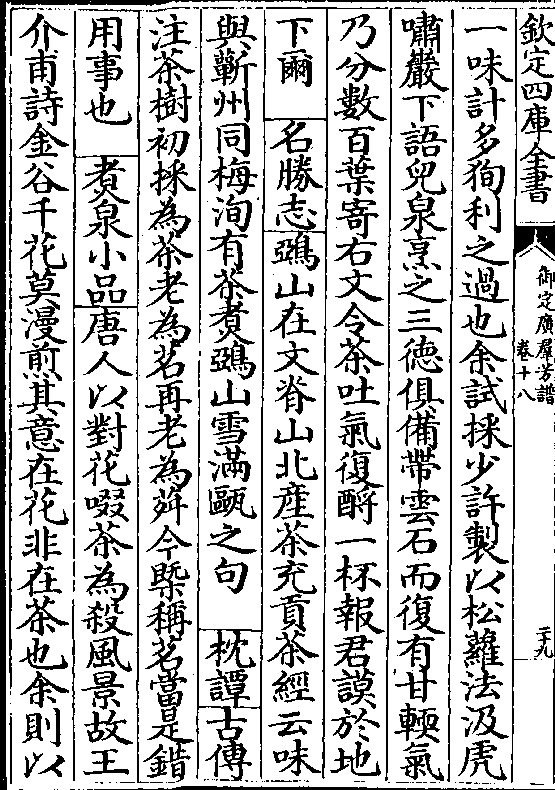 欽定四庫全書
御定廣羣芳譜
卷十八
二十九
一味計多狥利之過也余試採少許製以松蘿法汲虎
嘯巖下語兒泉烹之三徳俱備帶雲石而復有甘輭氣
乃分數百葉寄右文令茶吐氣復酹一杯報君謨於地
下爾 名勝志鵶山在文脊山北産茶充貢茶經云味
與蘄州同梅洵有茶煮鵶山雪滿甌之句 枕譚古傳
注茶樹初採為茶老為茗再老為荈今槩稱茗當是錯
用事也 煮泉小品唐人以對花啜茶為殺風景故王
介甫詩金谷千花莫漫煎其意在花非在茶也余則以